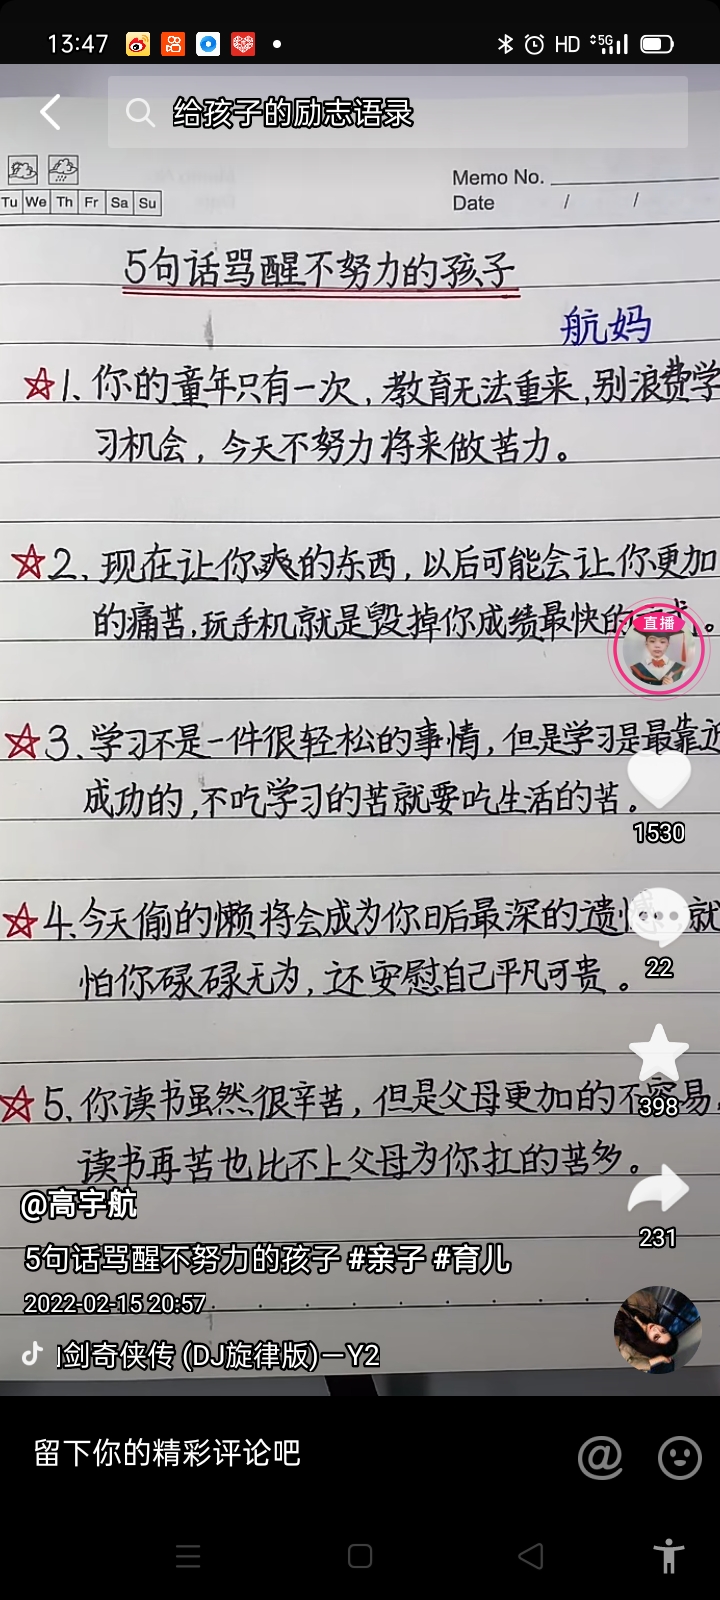 13:47
HD 5G
给孩子的励志语录
Memo No.
Tu We Th Fr Sa Su
Date / /
5句话骂醒不努力的孩子
航妈
1、你的童年只有一次，教育无法重来，别浪费学
习机会，今天不努力将来做苦力。
2、现在让你爽的东西，以后可能会让你更加
的痛苦，玩手机就是毁掉你成绩最快的
。
直播
3、学习不是一件很轻松的事情，但是学习是最靠近
成功的，不吃学习的苦就要吃生活的苦。
1530
4、今天偷的懒将会成为你日后最深的遗 就
怕你碌碌无为，还安慰自己平凡可贵。
22
5、你读书虽然很辛苦，但是父母更加的不容易，
398
读书再苦也比不上父母为你扛的苦多。
@高宇航
231
5句话骂醒不努力的孩子 #亲子 #育儿
2022-02-15 20:57
剑奇侠传 (DJ旋律版)－Y2
留下你的精彩评论吧